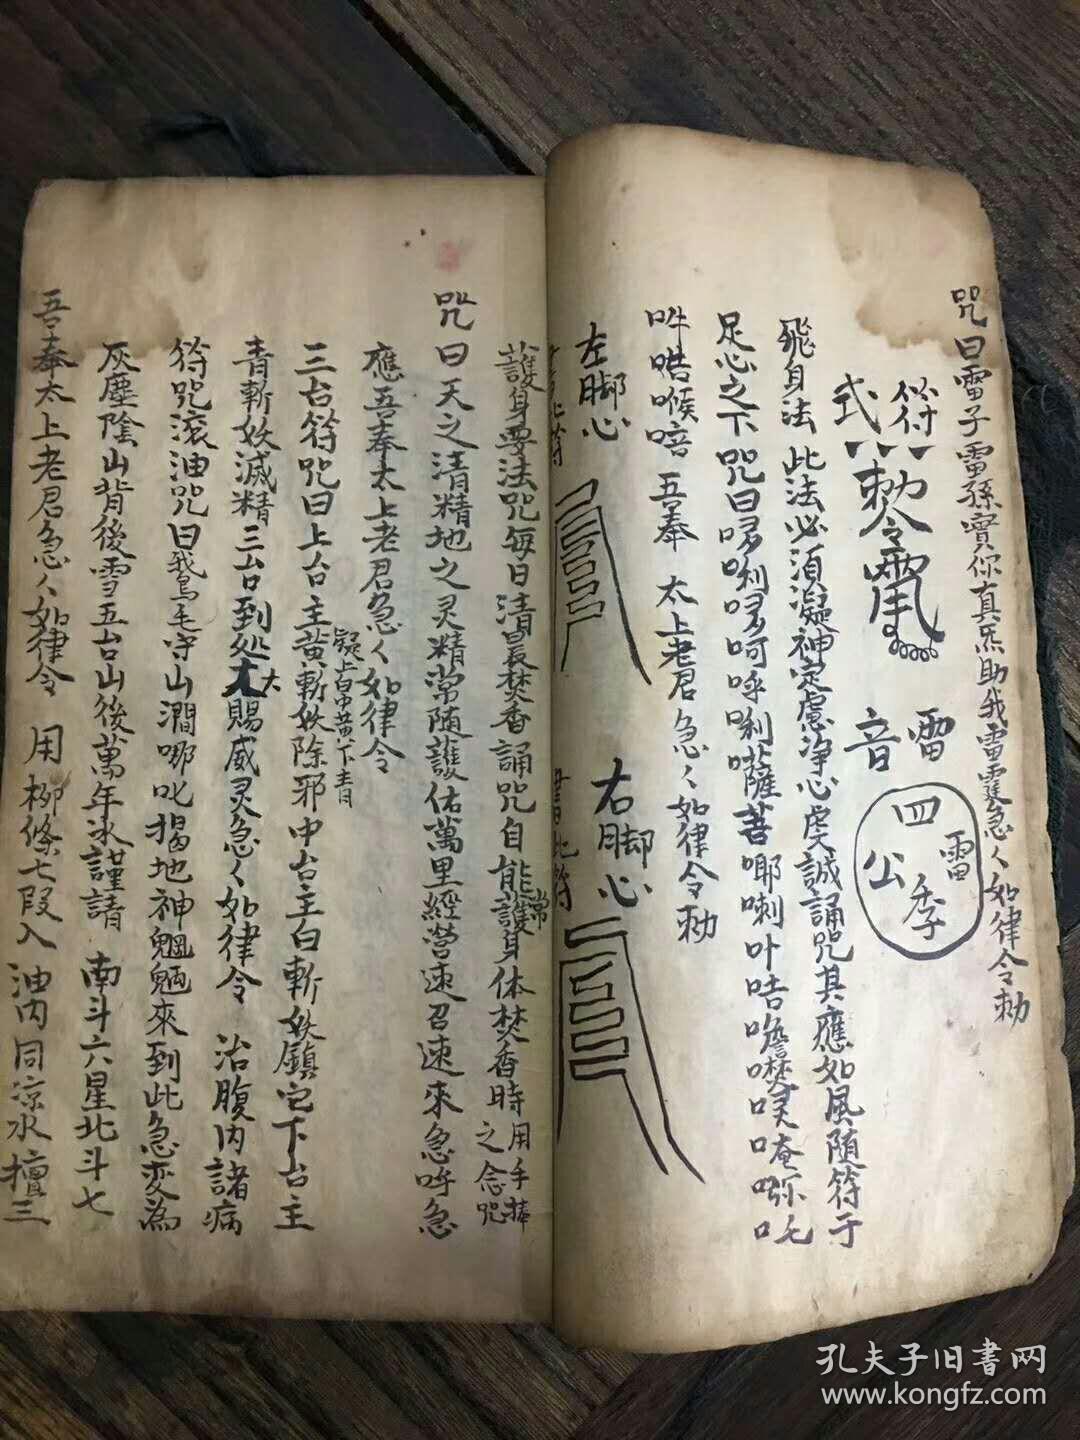 咒曰雷子雷孫實你真炁助我雷霆急々如律令勅
符式
勅令
雷音
雷四季公
飛身法 此法必須凝神定慮净心虔誠誦咒其應如風随符于
足心之下 咒曰哆唎哆呵呼唎薩菩唧喇叶咭噡噗唵嗰吒
吽喉喑 吾奉 太上老君急々如律令勅
左脚心
右脚心
書此符
書此符
護身要法咒每日清晨焚香誦咒自能常護身体焚香時用手捧之念咒
咒曰天之清精地之灵精常随護佑萬里經营速召速來急呼急
應吾奉太上老君急々如律令
疑上白中黄下青
三台符咒曰上台主黄斬妖除邪中台主白斬妖鎮宅下台主
青斬妖滅精三台到处大大賜威灵急々如律令 治腹内諸病
符咒滚油咒曰我鳥毛守山澗哪叱揭地神魍魎來到此急变為
灰塵陰山背後雪五台山後萬年冰謹請 南斗六星北斗七
吾奉太上老君急々如律令 用柳條七段入油内同凉水擅三
孔夫子旧書网
www.kongfz.com